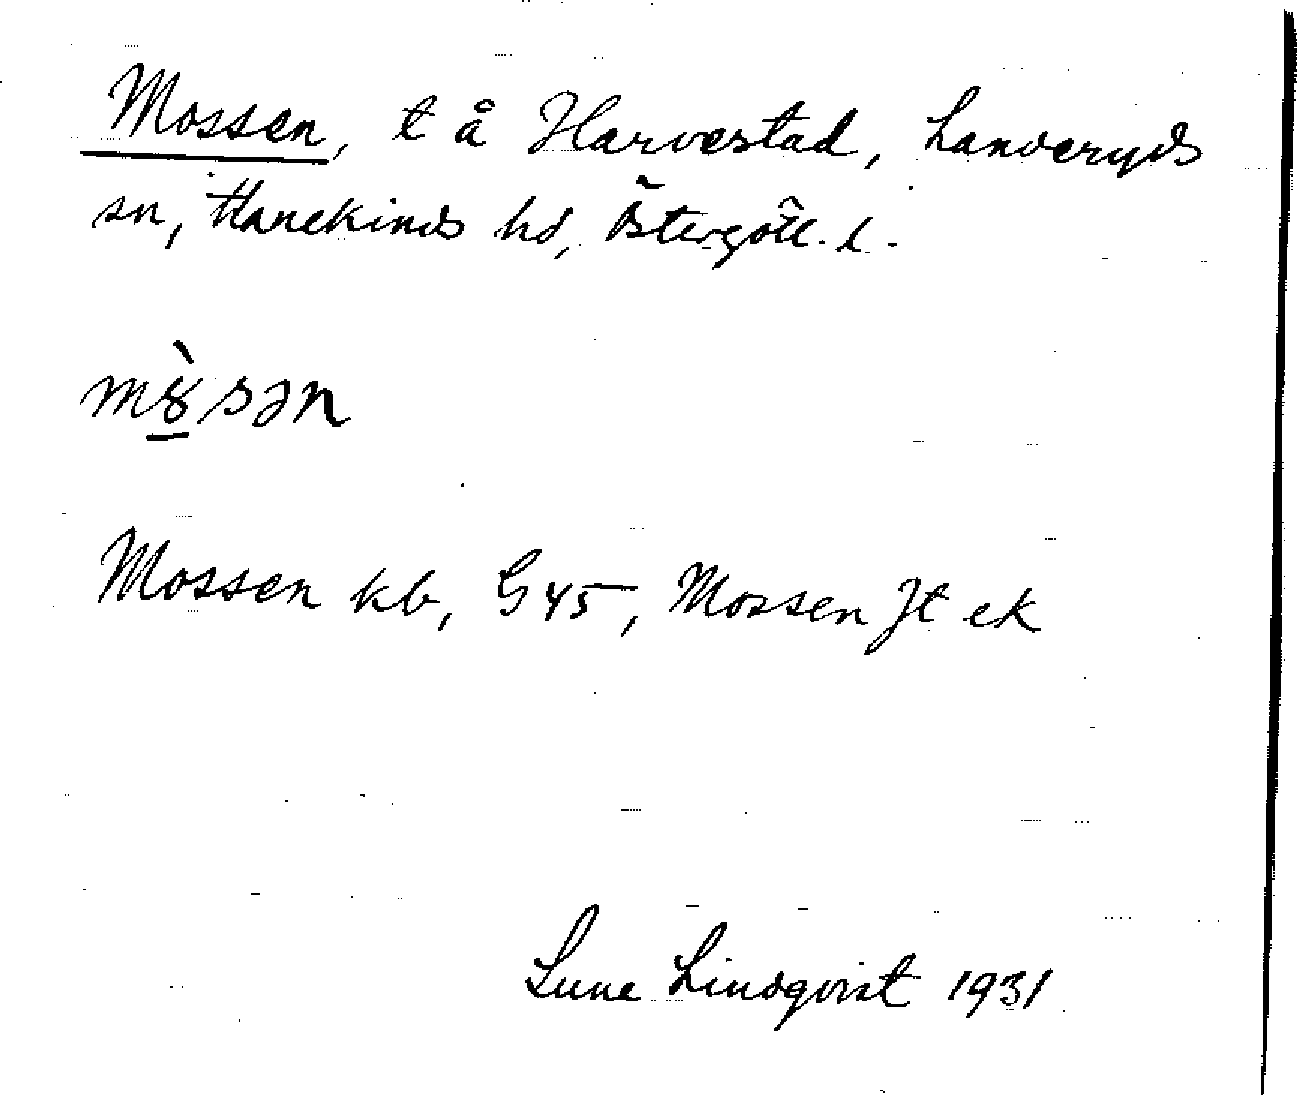 Mossen, t å Harvestad, Landeryds
sn, Hanekinds hd, Östergötl. l.
mɤ̠̀sən
Mossen kb, G45, Mossen Jt ek
Sune Lindqvist 1931